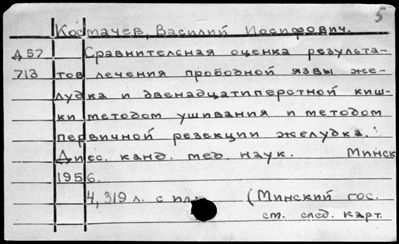 5
Костачев, Василий Иосифович.
Д57 Сравнительная оценка результа-
713 тов лечения прободной язвы же-
лудка и двенадцатиперстной киш-
ки методом ушивания и методом
первичной резекции желудка.:
Дисс. канд. мед. наук. Минск
1956.
4,319 л. с ил. (Минский гос.
см. след. карт.